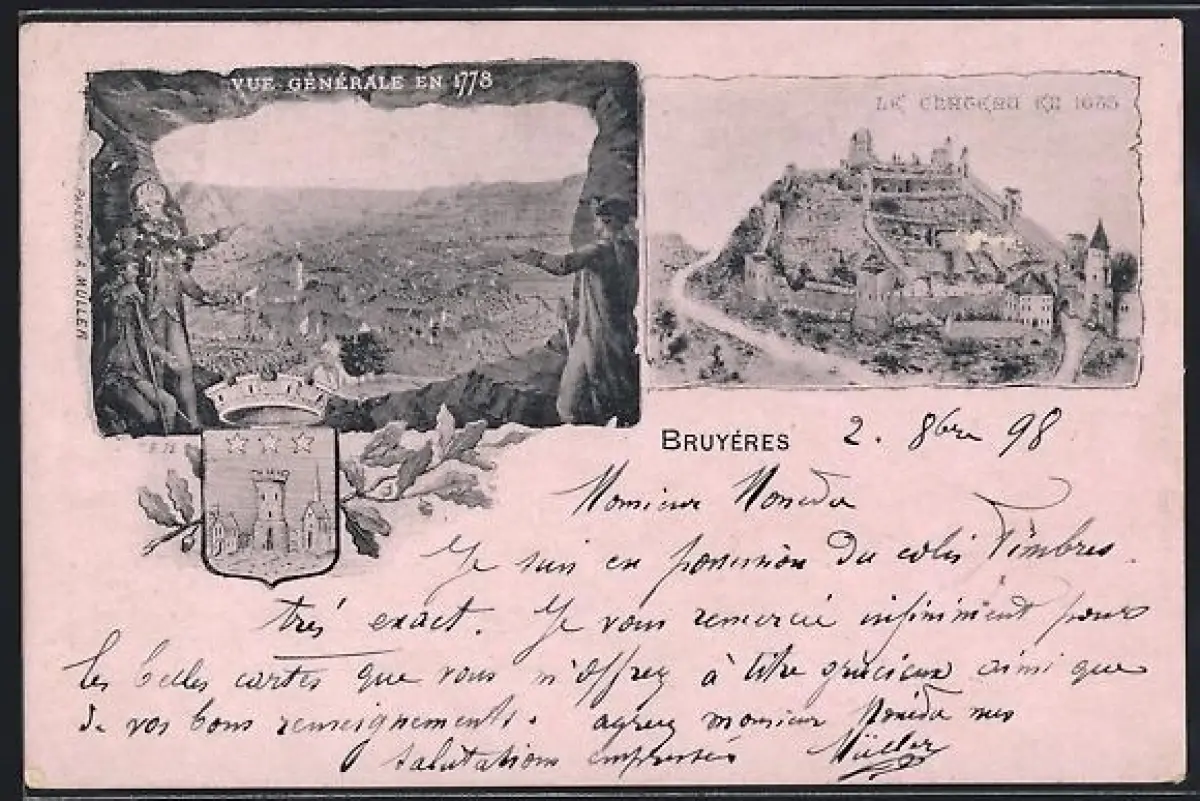 VUE GÉNÉRALE EN 1778
LE CHATEAU EN 1635
PAPETERIE A. MÜLLER
BRUYÉRES 2. 8bre 98
Monsieur Moneda
Je suis en possession du colis Timbres.
très exact. Je vous remercie infiniment pour
les belles cartes que vous m'offrez à titre grâcieux ainsi que
de vos bons renseignements. agreez monsieur Moneda mes
salutations empressées Müller